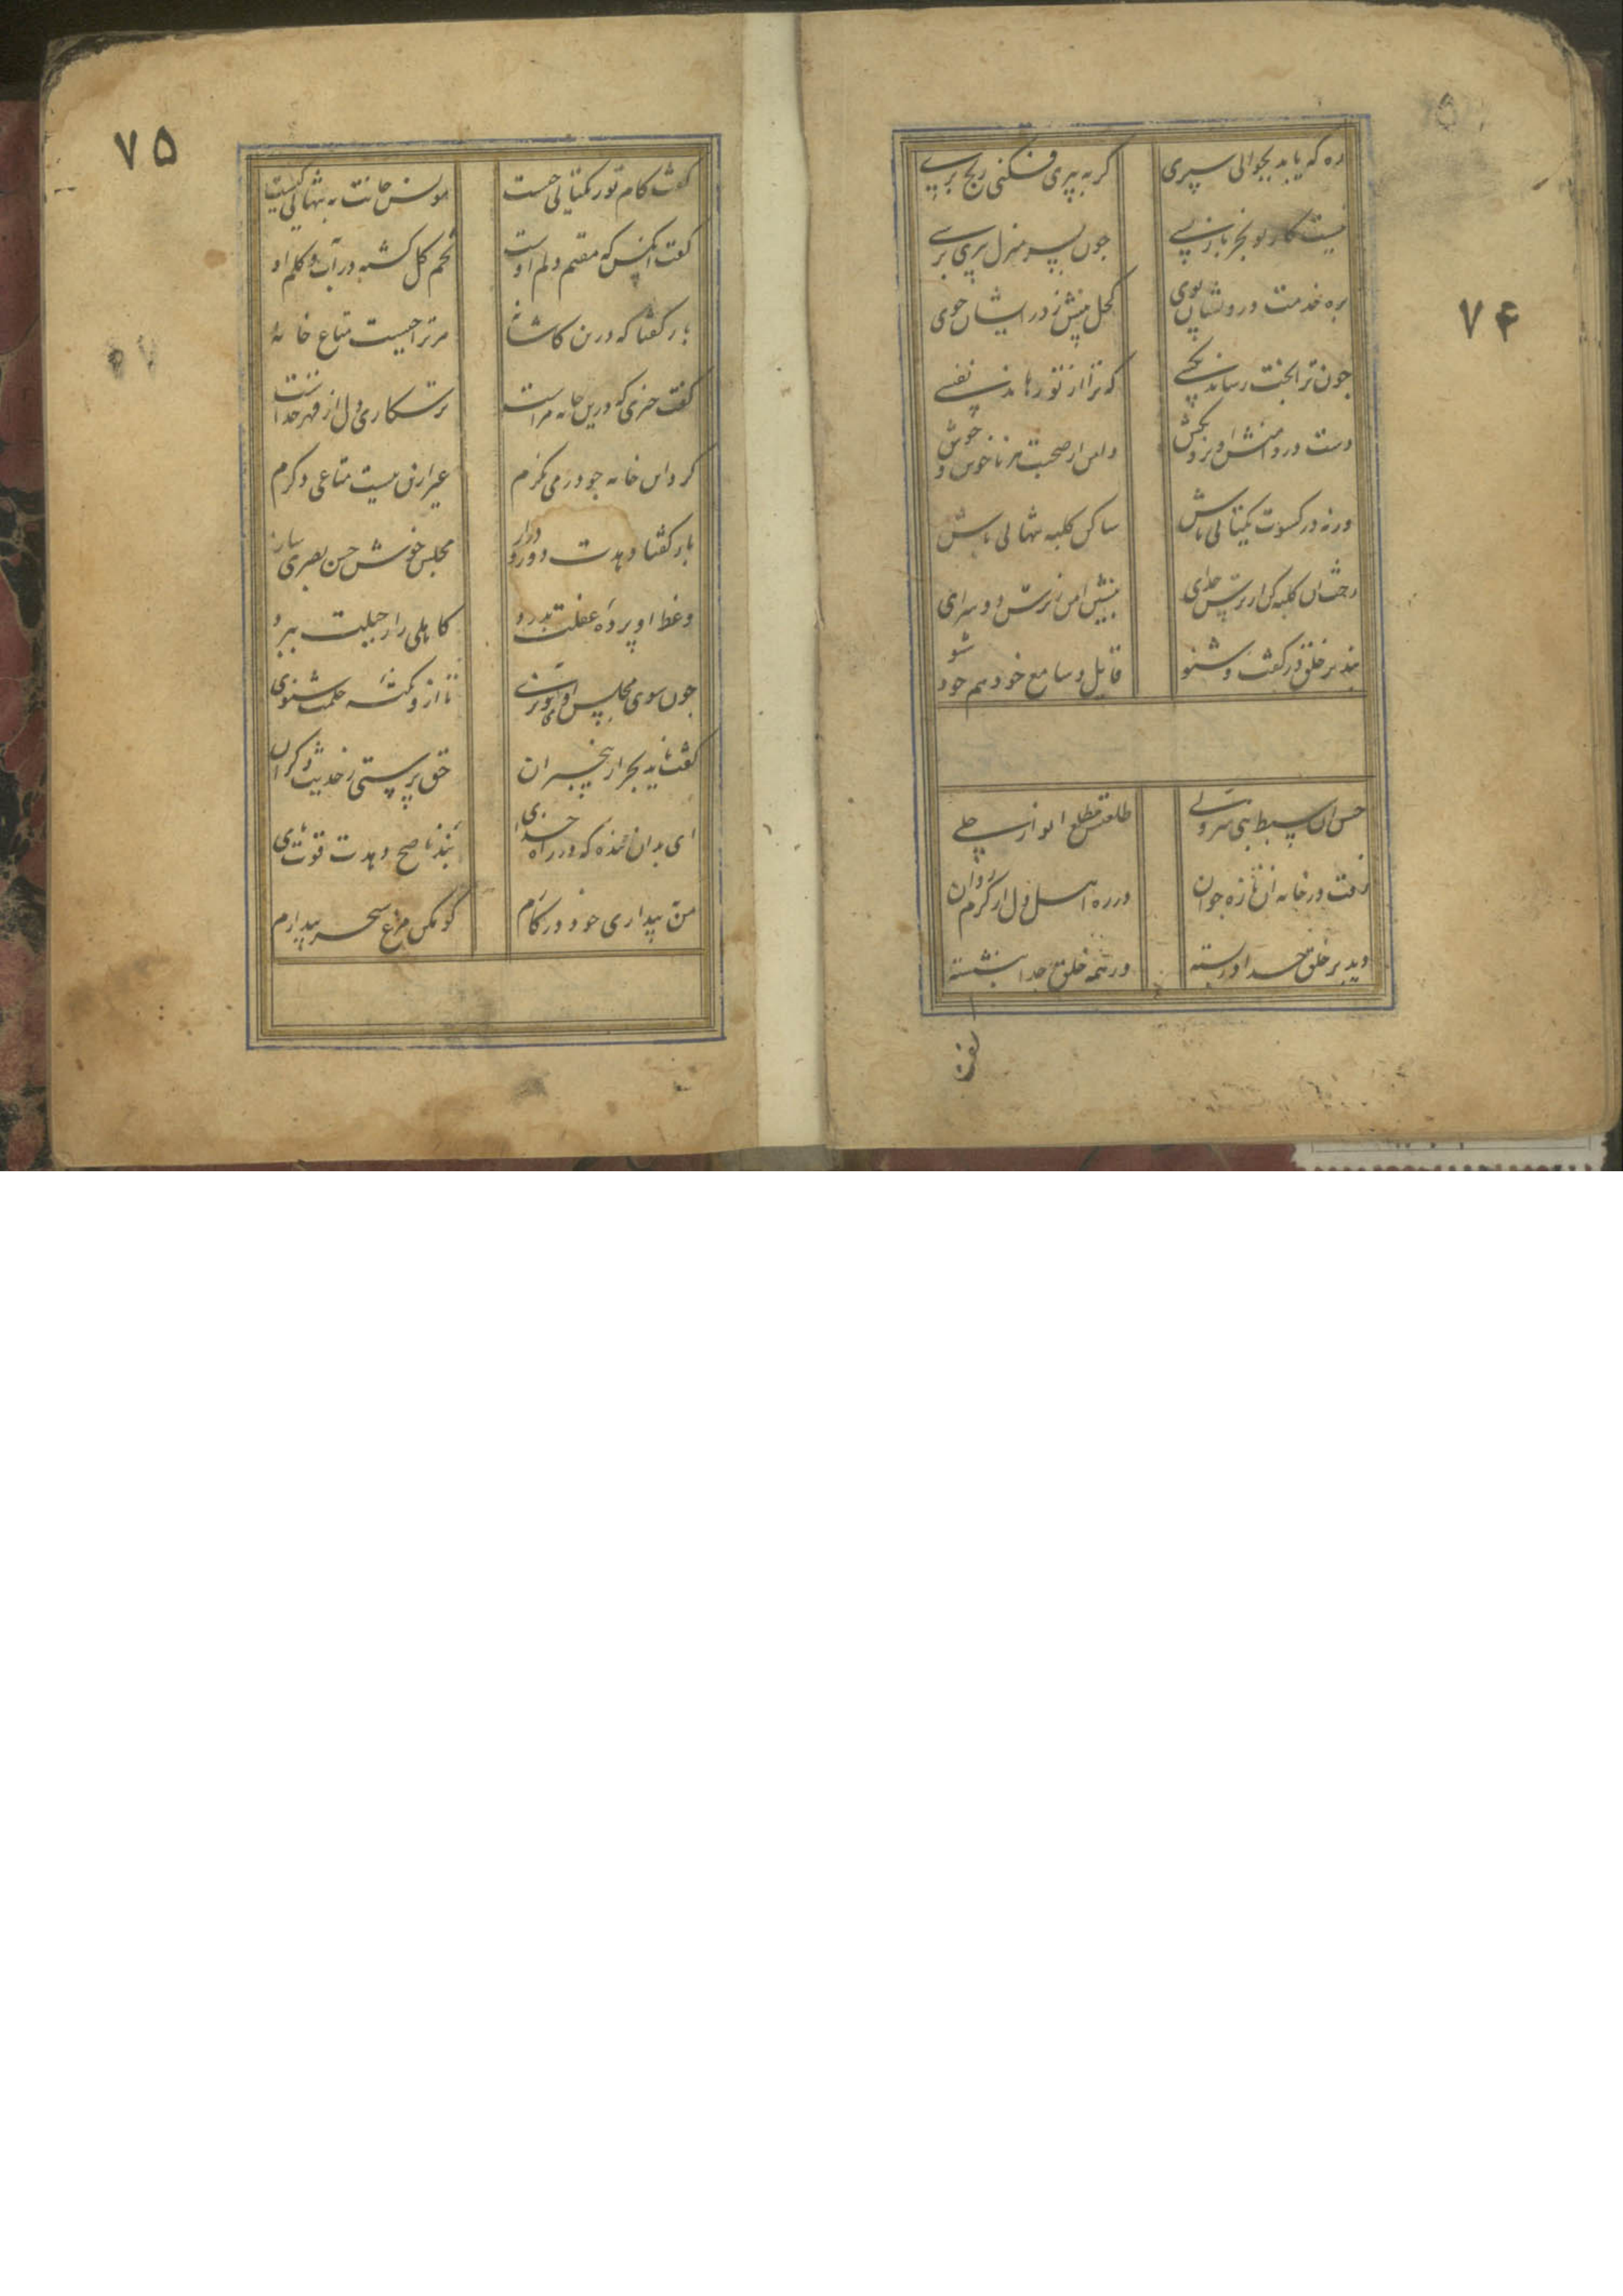 ۷۴
ره که یابد بجوانی سپری
گر به پیری فکنی رنج بری
نیست کار تو بجز بازپسی
چون بسر منزل پیری برسی
بره خدمت درویشان پوی
کحل بینش ز در ایشان جوی
چون ترا بخت رساند بکسی
که ترا از تو رهاند نفسی
دست در دامنش آویز و بکش
دامن از صحبت هر ناخوش و خوش
ورنه در کسوت یکتایی باش
ساکن کلبه تنهایی باش
رخت ازان کلبه کن از ترس خدای
بنشین ایمن ز ترس دو سرای
بند بر خلق در گفت و شنو
قایل و سامع خود هم خود شو
حسن آن سبط نبی سر ولی
طلعتش مطلع انوار جلی
رفت در خانه آن تازه جوان
در ره اهل دل از گرم روان
دید بر خلق خدا در بسته
وز همه خلق جدا بنشسته
گفت
۷۵
گفت کام تو ز یکتایی چیست
مونس جانت به تنهایی کیست
گفت آنکس که مقیم دلم اوست
تخم گل کشته در آب و گلم او
باز گفتا که درین کاشانه
مر ترا چیست متاع خانه
گفت چیزی که درین خانه مراست
ترسکاری دل از قهر خداست
گرد این خانه چو در می‌نگرم
غیر ازین نیست متاعی دگرم
باز گفتا دهدت دور و دراز
مجلس خوش حسن بصری ساز
وعظ او پرده غفلت بدرد
کاهلی را ز جبلت ببرد
چون سوی مجلس او پی نبری
تا ازو نکته حکمت شنوی
گفت ناید بجز از بیخبران
حق پرستی ز حدیث دگران
ای بدان بنده که در راه خدای
پند ناصح دهدت قوت پای
من به بیداری خود در کارم
گو مکن مرغ سحر بیدارم